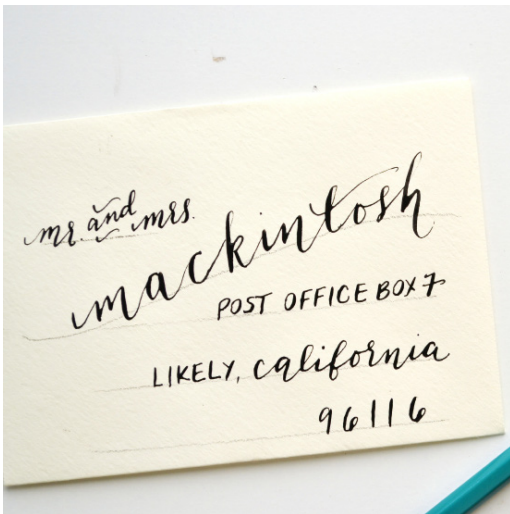 mr. and mrs.
mackintosh
POST OFFICE BOX 7
LIKELY, california
96116